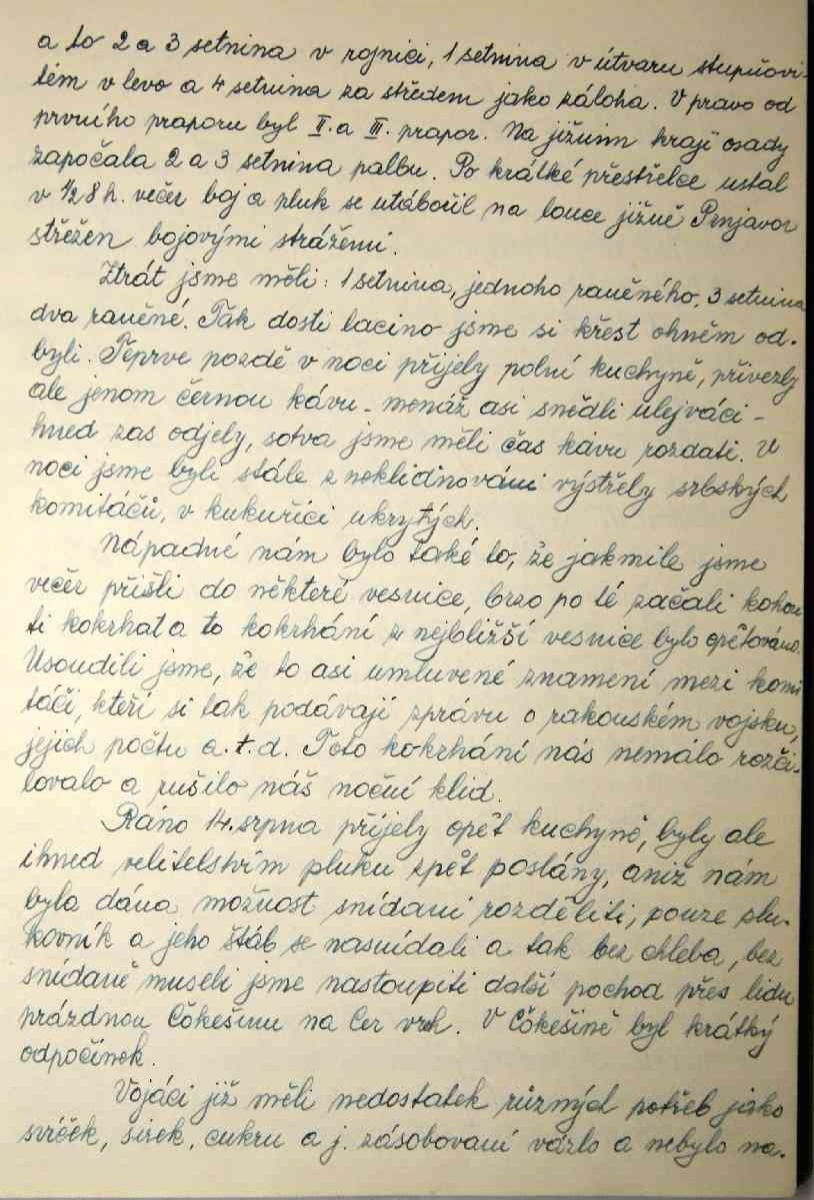 a to 2 a 3 setnina v rojnici, 1 setnina v útvaru stupňovi-
tém v levo a 4 setnina za středem jako záloha. V pravo od
prvního praporu byl II. a III. prapor. Na jižním kraji osady
započala 2 a 3 setnina palbu. Po krátké přestřelce ustal
v 1/2 8 h. večer boj a pluk se utábořil na louce jižně Prnjavor
střežen bojovými strážemi.
Ztrát jsme měli: 1 setnina, jednoho raněného, 3 setnina
dva raněné. Tak dosti lacino jsme si křest ohněm od-
byli. Teprve pozdě v noci přijely polní kuchyně, přivezly
ale jenom černou kávu - menáž asi snědli ulejváci -
hned zas odjely, sotva jsme měli čas kávu rozdati. V
noci jsme byli stále znoklidňováni výstřely srbských
komitáčů, v kukuřici ukrytých.
Nápadné nám bylo také to, že jakmile jsme
večer přišli do některé vesnice, brzo po té začali kohou
ti kokrhat a to kokrhání z nejbližší vesnice bylo opětováno.
Usoudili jsme, že to asi umluvené znamení mezi komi
táči, kteří si tak podávají zprávu o rakouském vojsku,
jejich počtu a.t.d. Toto kokrhání nás nemálo rozči-
lovalo a rušilo náš noční klid.
Ráno 14. srpna přijely opět kuchyně, byly ale
ihned velitelstvím pluku zpět poslány, aniž nám
byla dána možnost snídani rozděliti, pouze plu-
kovník a jeho štáb se nasnídali a tak bez chleba, bez
snídaně museli jsme nastoupiti další pochod přes lidu
prázdnou Čokešinu na Cer vrch. V Čokešině byl krátký
odpočinek.
Vojáci již měli nedostatek různých potřeb jako
svíček, sirek, cukru a j. zásobovaní vázlo a nebylo na-